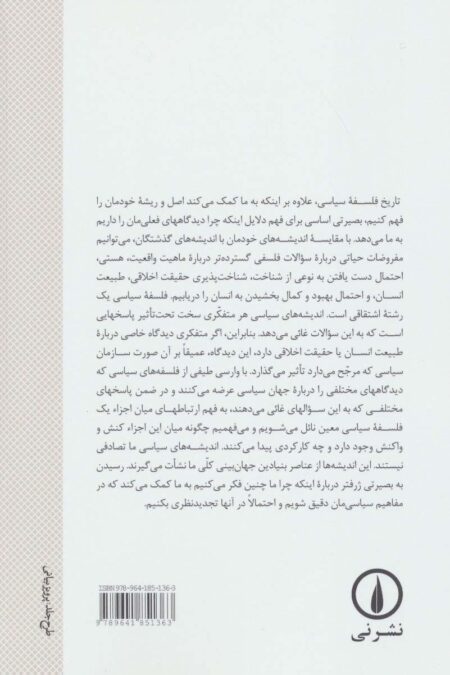 تاریخ فلسفهٔ سیاسی، علاوه بر اینکه به ما کمک می‌کند اصل و ریشهٔ خودمان را
فهم کنیم، بصیرتی اساسی برای فهم دلایل اینکه چرا دیدگاههای فعلی‌مان را داریم
به ما می‌دهد. با مقایسهٔ اندیشه‌های خودمان با اندیشه‌های گذشتگان، می‌توانیم
مفروضات حیاتی دربارهٔ سؤالات فلسفی گسترده‌تر دربارهٔ ماهیت واقعیت، هستی،
احتمال دست یافتن به نوعی از شناخت، شناخت‌پذیری حقیقت اخلاقی، طبیعت
انسان، و احتمال بهبود و کمال بخشیدن به انسان را دریابیم. فلسفهٔ سیاسی یک
رشتهٔ اشتقاقی است. اندیشه‌های سیاسی هر متفکّری سخت تحت‌تأثیر پاسخهایی
است که به این سؤالات غائی می‌دهد. بنابراین، اگر متفکری دیدگاه خاصی دربارهٔ
طبیعت انسان یا حقیقت اخلاقی دارد، این دیدگاه، عمیقاً بر آن صورت سازمان
سیاسی که مرجّح می‌دارد تأثیر می‌گذارد. با وارسی طیفی از فلسفه‌های سیاسی که
دیدگاههای مختلفی را دربارهٔ جهان سیاسی عرضه می‌کنند و در ضمن پاسخهای
مختلفی که به این سؤالهای غائی می‌دهند، به فهم ارتباطهای میان اجزاء یک
فلسفهٔ سیاسی معین نائل می‌شویم و می‌فهمیم چگونه میان این اجزاء کنش و
واکنش وجود دارد و چه کارکردی پیدا می‌کنند. اندیشه‌های سیاسی ما تصادفی
نیستند. این اندیشه‌ها از عناصر بنیادین جهان‌بینی کلّی ما نشأت می‌گیرند. رسیدن
به بصیرتی ژرفتر دربارهٔ اینکه چرا ما چنین فکر می‌کنیم به ما کمک می‌کند که در
مفاهیم سیاسی‌مان دقیق شویم و احتمالاً در آنها تجدیدنظری بکنیم.
ISBN 978-964-185-136-3
9 789641 851363
نشر نی
طرح جلد: پرویز بیانی